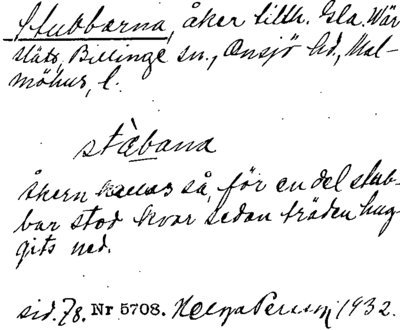 Stubbarna, åker tillh. Gla. Wär
slätt, Billinge sn., Onsjö hd., Mal-
möhus, l.
stèbana
Åkern kallas så, för en del stub-
bar stod kvar sedan träden hug-
gits ned.
sid. 78. Nr 5708. Helga Persson 1932.